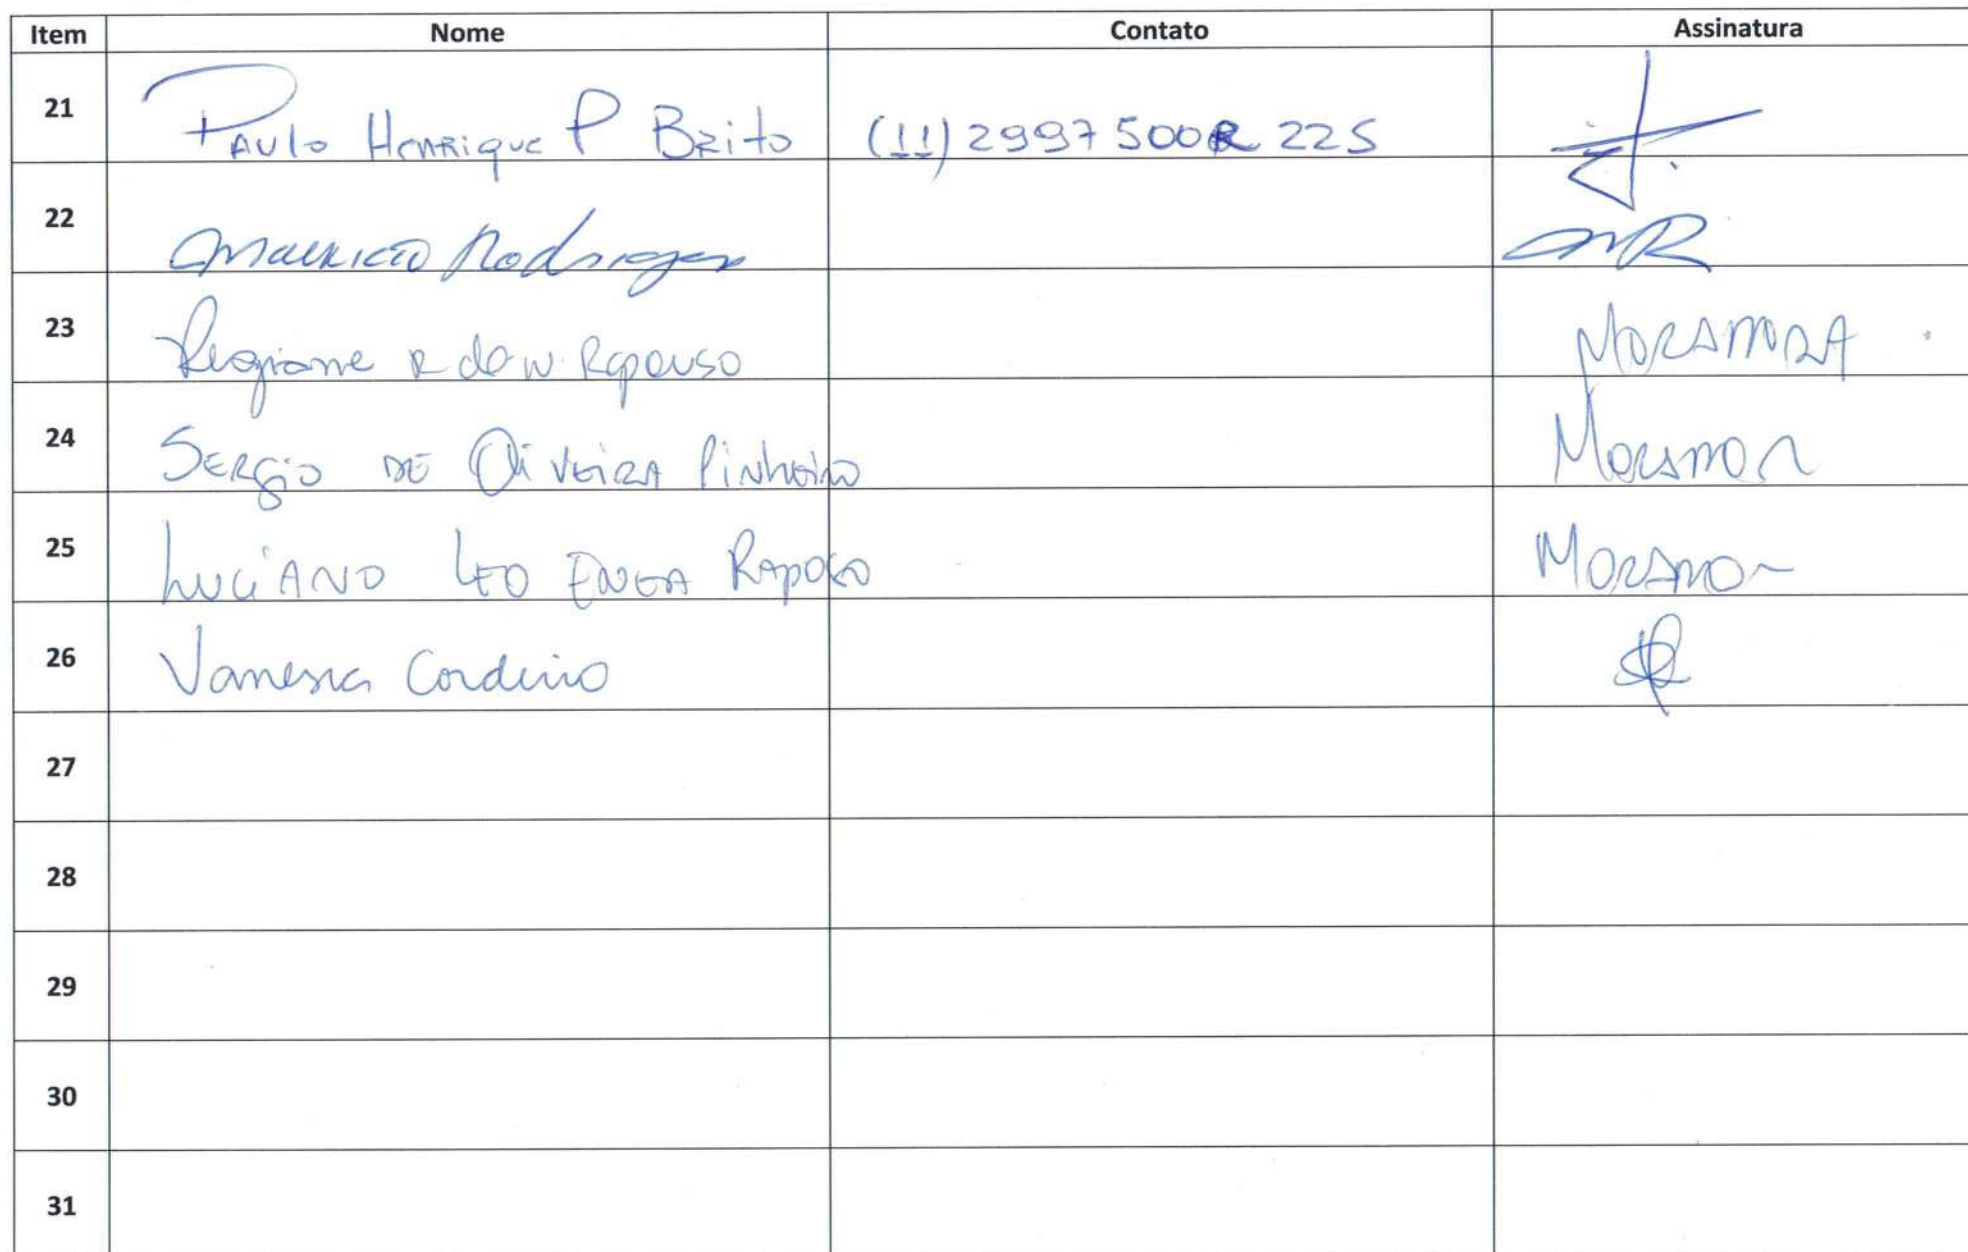 Item Nome Contato Assinatura
21 Paulo Henrique P Brito (11) 2997 5008 R 225
22 Mauricio Rodrigues MR
23 Regiane R de Raposo
24 SERGIO DE OliVEIRA PiNheiro Morador
25 LUCIANO Raposo Morador
26 Vanessa Cordeiro
27
28
29
30
31